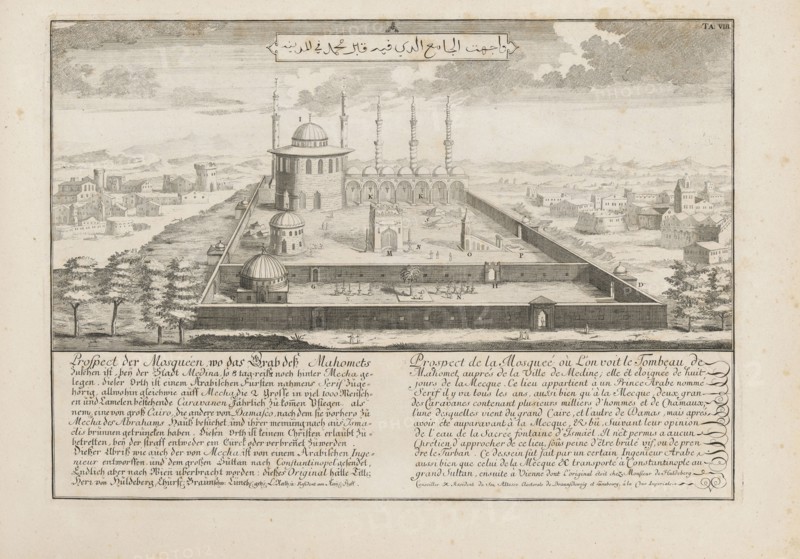 TA: VIII.
A
واجهت الجامع الذي فيه قابر محمد في المدينه
Prospect der Mosquéen, wo das Grab deß Mahomets
Zusehen ist, beÿ der Stadt Medina, so 8 tag reiß noch hinter Mecha ge-
legen. Dieser Orth ist einem Arabischen Fürsten nahmens Serif Zuge-
hörig, allwohin gleichwie auff Mecha die 2 grosse in viel 1000 Mensch-
en und Camelen bestehende Caravanen, Jährlich Zu komen Pflegen. als
nemb. eine von groß Cairo, die andere von Damasco, nach dem sie vorhero Zu
Mecha des Abrahams Hauß besuchet, und ihrer meinung nach auß Isma-
elis brünnen getruncken haben. Diesen Orth ist keinem Christen erlaubt Zu
bettretten, beÿ der straff entweder ein Türck oder verbrennet Zu werden
Dieser Abriß wie auch der von Mecha, ist von einem Arabischen Inge-
nieur entworffen, und dem großen Sultan nach Constantinopel gesendet,
Endlich aber nach Wien uberbracht worden. dießes Original hätte Titl:
Herr von Hüldeberg, Churfl: Braunschw: Luneb:
Prospect de la Mosqueé où L'on voit le Tombeau de
Mahomet, auprés de la Ville de Medine; elle ét éloignée de huit
jours de la Mecque. Ce lieu appartient a un Prince Arabe nommé
Serif il y va tous les ans, aussi bien qu'à la Mecque, deux gran-
des Caravanes contenant plusieurs milliers d'hommes et de Chamaux,
l'une desquelles vient du grand Caire, et l'autre de Damas, mais aprés
avoir éte auparavant à la Mecque, & bû, suivant leur opinion
de l'eau de la Sacreé fontaine d'Ismaël. Il n'ét permis a aucun
Chretien d'approcher de ce lieu, sous peine d'étre brûlé vif, ou de pren-
dre le Turban. Ce dessein fut fait par un certain Ingenieur Arabe
aussi bien que celui de la Mecque & transporté à Constantinople au
grand Sultan, ensuite à Vienne dont l'original étoit chéz Monsieur de Huldeberg
Conseiller & Resident de Son Altesse Electorale de Brounschwig et Lunebourg, à la Cour Imperiale.